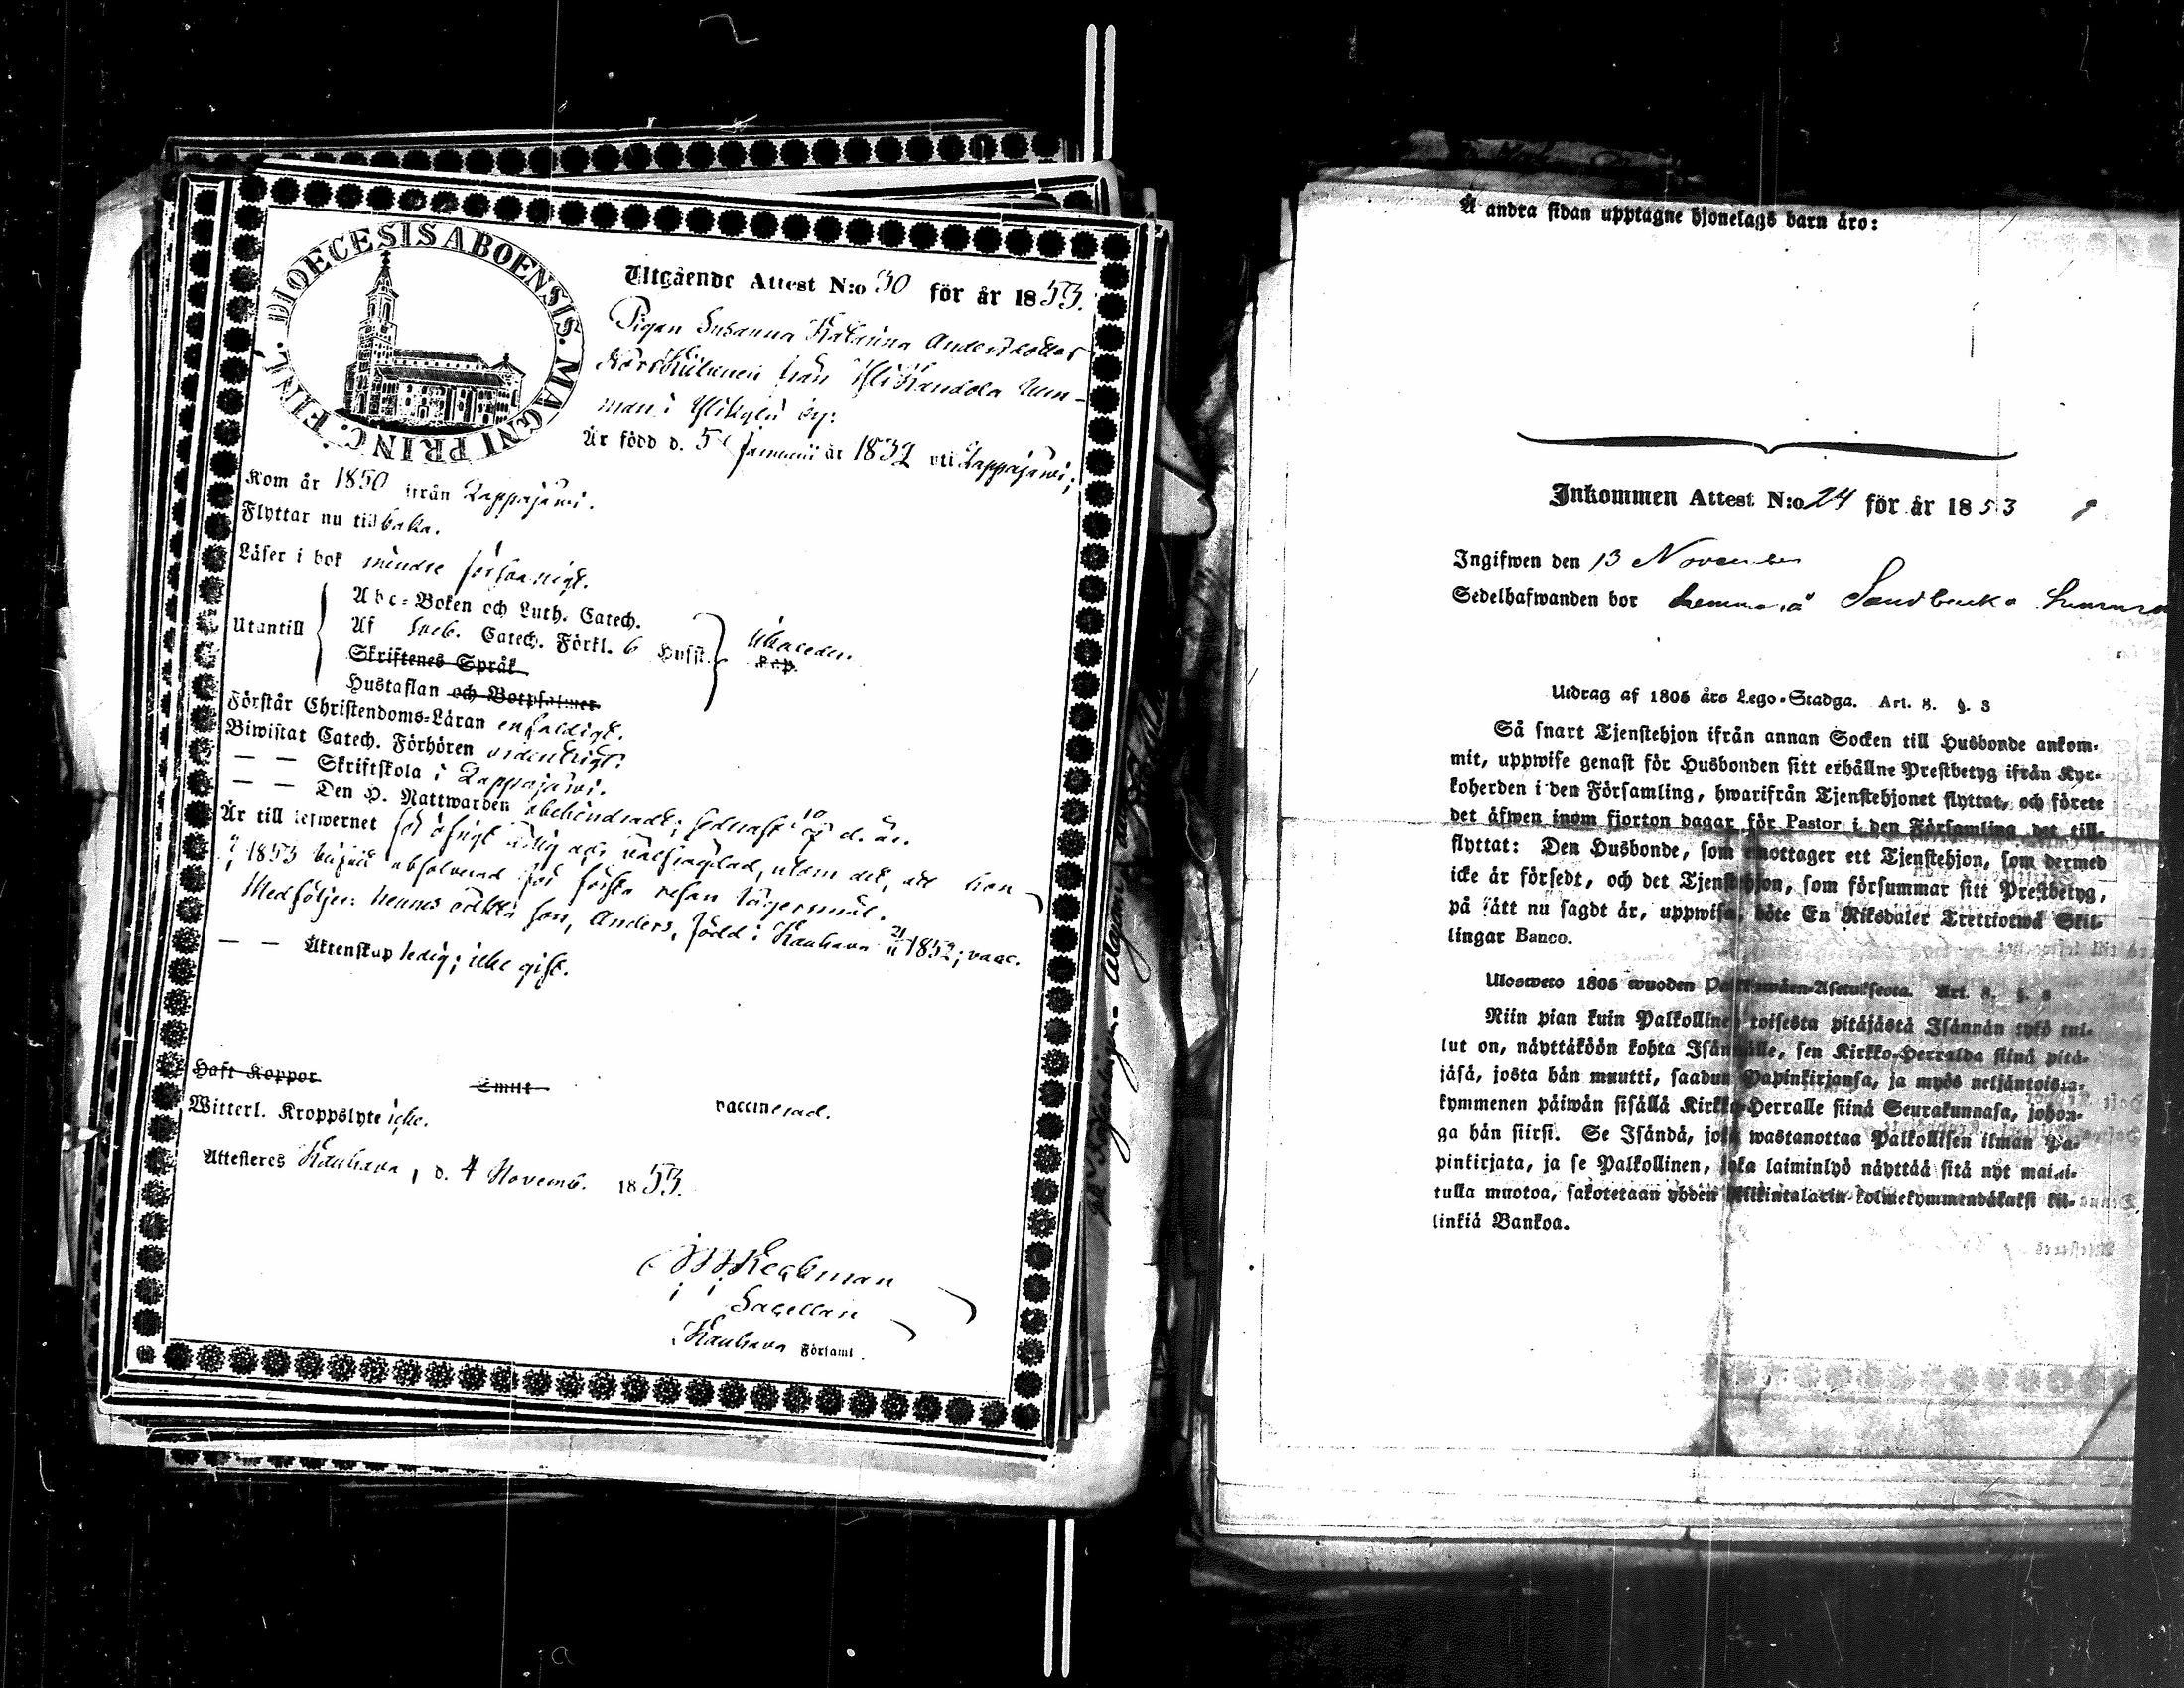 DIOECESIS ABOENSIS. MAGNI PRINC. FINL.
Utgående Attest N:o 30 för år 1853.
Pigan Susanna Katarina Andersdotter
från Yli Kandola hem-
man i Ylikylä by:
Är född d. 5 Januarii år 1832 uti Lappajärvi;
Kom år 1850 ifrån Lappajärvi.
Flyttar nu tillbaka.
Läser i bok mindre försvarligt.
Utantill
Abc-Boken och Luth. Catech.
Af Sveb. Catech. Förkl. 6 Hufst.
Skriftenes Språk
Hustaflan och Botpsalmer
kap.
Förstår Christendoms-Läran enfaldigt.
Biwistat Catech. Förhören ordentligt.
— — Skriftskola i Lappajärvi.
— — Den H. Nattwarden obehindradt; sednast d. år.
Är till lefwernet för öfrigt ärlig och välfrägdad, utom det, att hon
1853 blifvit absolverad för första resan lägersmål.
Medföljer: hennes oäkta son, Anders, född i Kauhava 1852; vacc.
— — Äktenskap ledig; icke gift.
Haft Koppor
Smitt
vaccinerad.
Witterl. Kroppslyte icke.
Attesteras Kauhava, d. 4 Novemb. 1853.
Sacellan
Kauhava Församl.
Å andra sidan upptagne hjonelags barn äro:
Inkommen Attest N:o 24 för år 1853
Ingifwen den 13 November
Sedelhafwanden bor hemma å Sandbacka
Utdrag af 1805 års Lego-Stadga. Art. 8. §. 3
Så snart Tjenstehjon ifrån annan Socken till Husbonde ankom-
mit, uppwise genast för Husbonden sitt erhållne Prestbetyg ifrån Kyr-
koherden i den Församling, hwarifrån Tjenstehjonet flyttat, och förete
det äfwen inom fjorton dagar för Pastor i den Församling det till-
flyttat: Den Husbonde, som emottager ett Tjenstehjon, som dermed
icke är försedt, och det Tjenstehjon, som försummar sitt Prestbetyg,
på sätt nu sagdt är, uppwisa, böte En Riksdaler Trettiotwå Skil-
lingar Banco.
Ulosweto 1805 wuoden Palkkawäen-Asetuksesta. Art. 8. §. 3
Niin pian kuin Palkollinen toisesta pitäjästä Isännän tykö tul-
lut on, näyttäköön kohta Isännälle, sen Kirkko-Herralda siinä pitä-
jäsä, josta hän muutti, saadun Papinkirjansa, ja myös neljäntoista-
kymmenen päiwän sisällä Kirkko-Herralle siinä Seurakunnasa, johon-
ga hän siirsi. Se Isändä, joka wastanottaa Palkollisen ilman Pa-
pinkirjata, ja se Palkollinen, joka laiminlyö näyttää sitä nyt maini-
tulla muotoa, sakotetaan yhden Riikintalarin kolmekymmendäkaksi kil-
linkiä Bankoa.